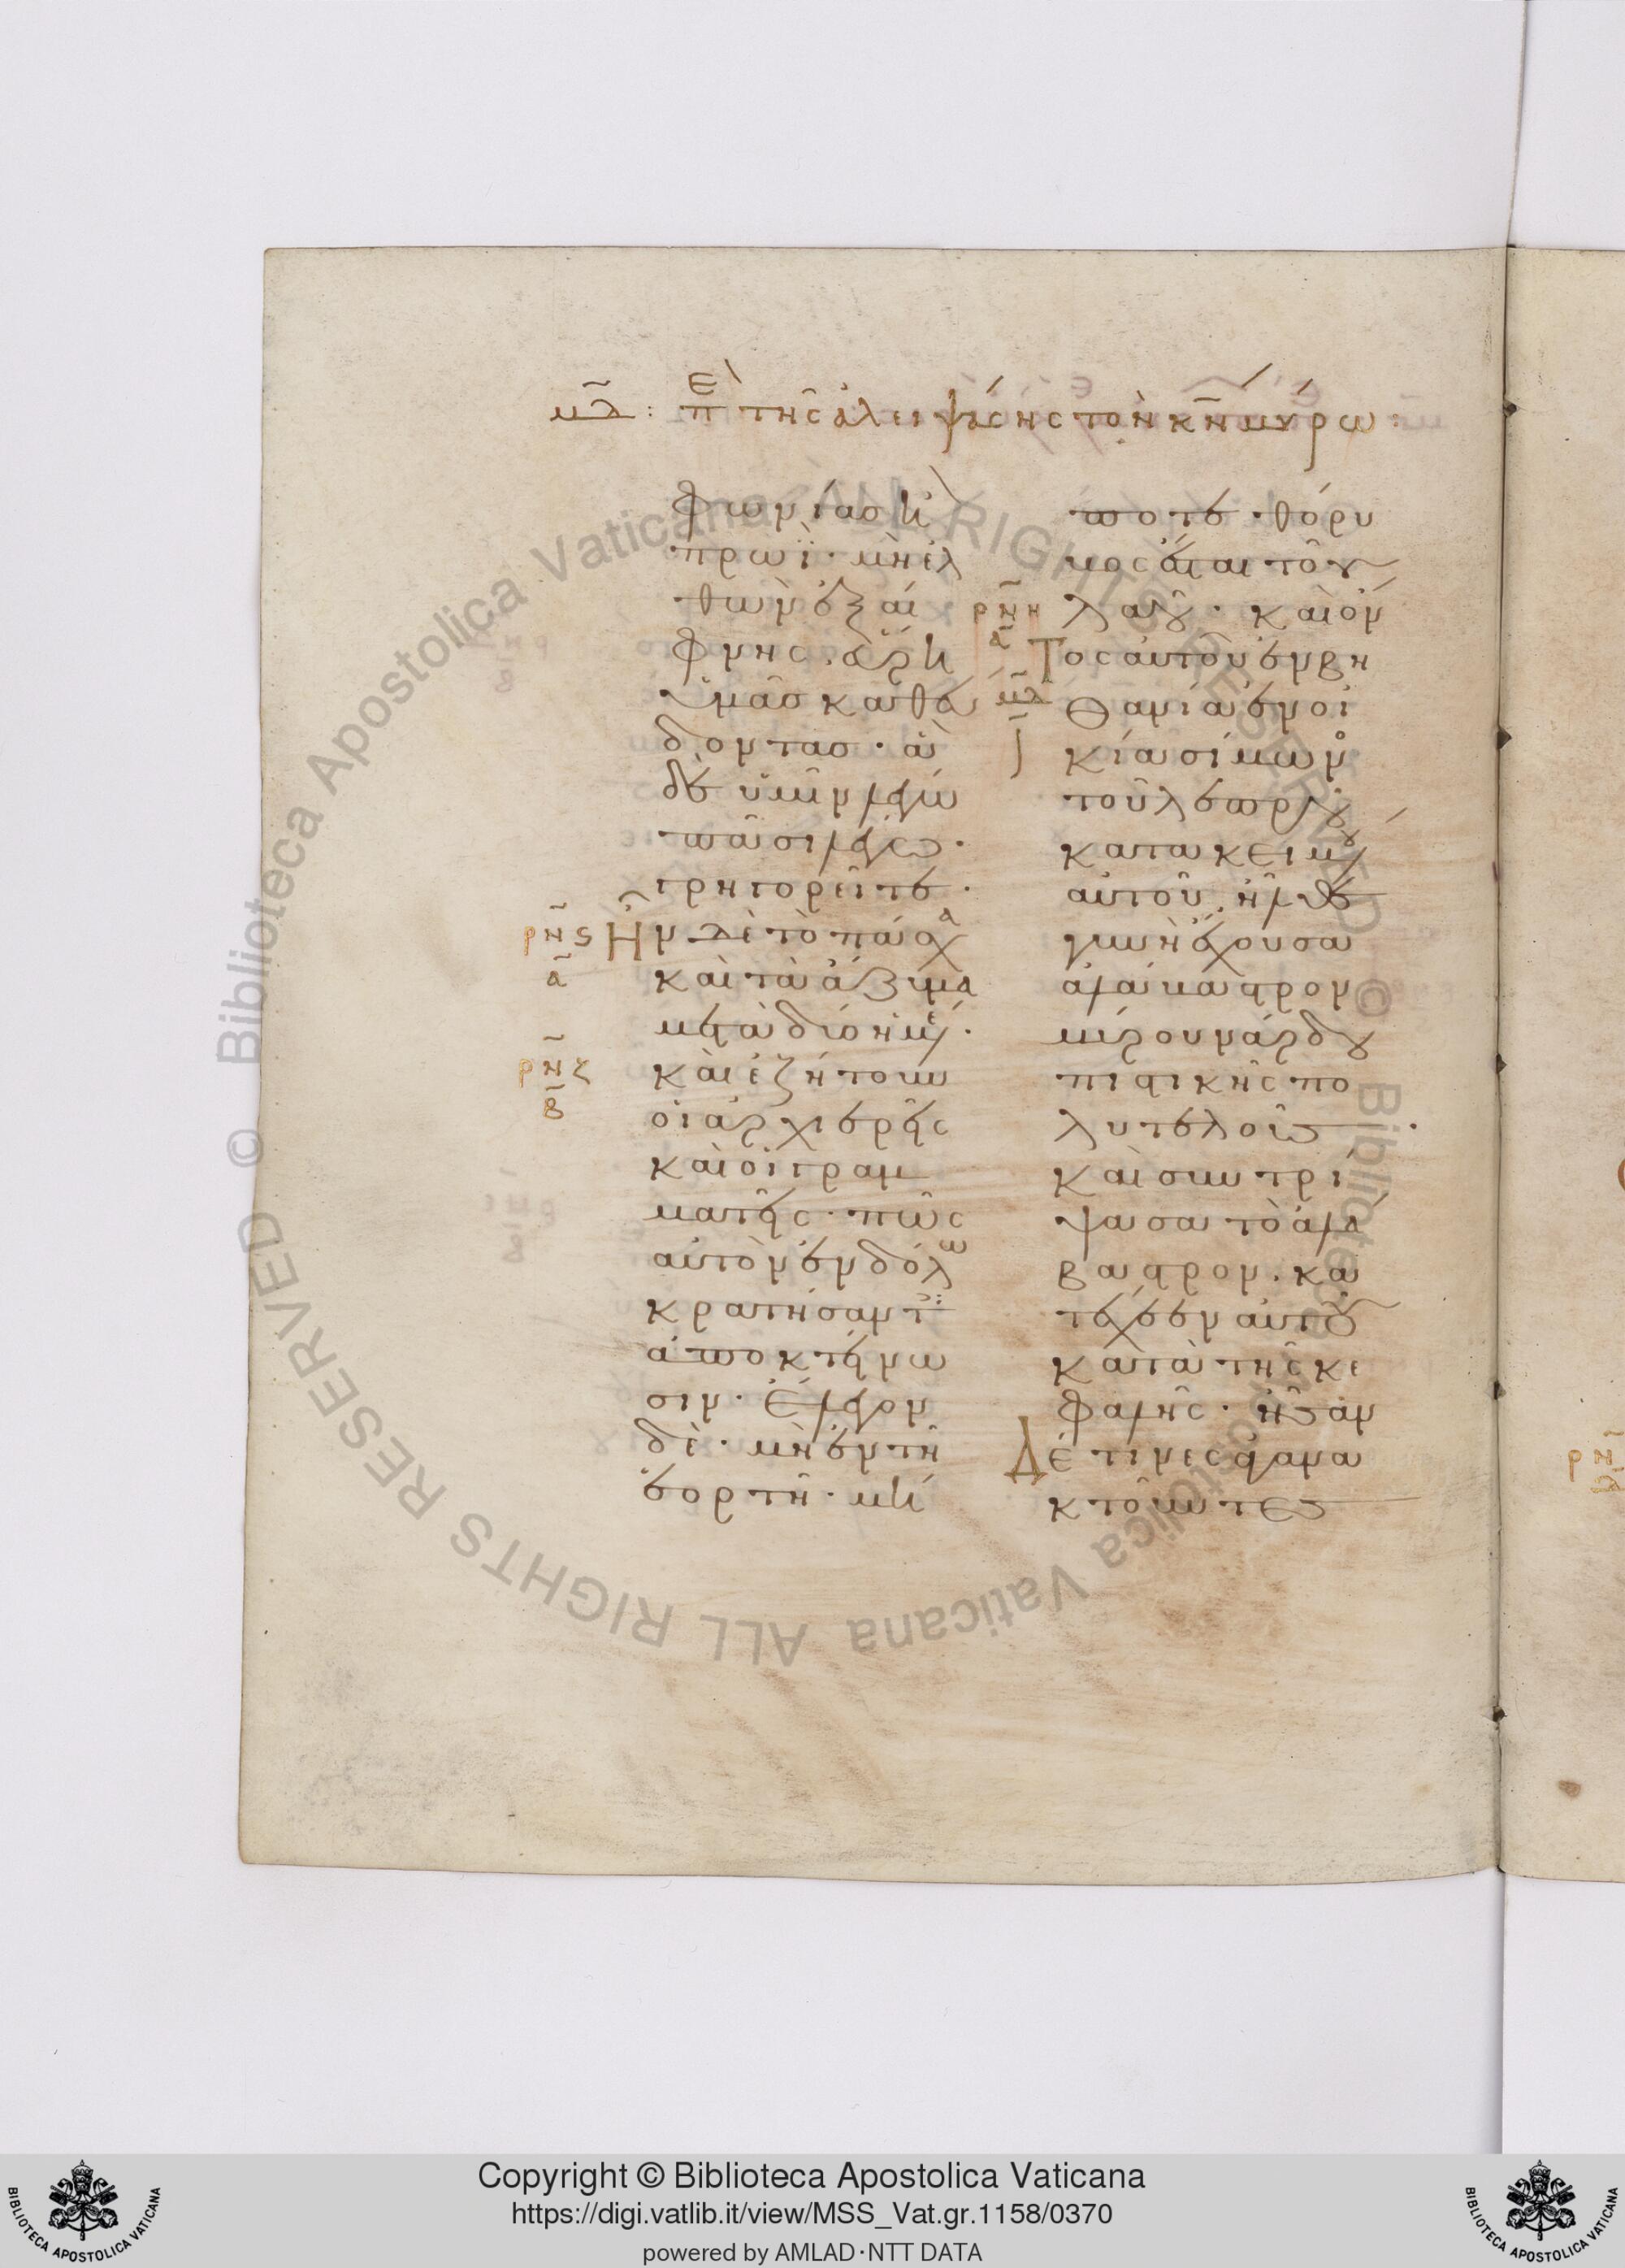 μ̅δ̅: ΕΠῚ τῆς ἀλειψάσης τὸν κ̅ν̅ μύρω
φωνίας ἢ
πρωΐ· μὴ ἐλ
θὼν ἐξαί
φνης εὕρη
ὑμᾶς καθεύ
δοντας· ἃ
δὲ ὑμῖν λέγω
πᾶσι λέγω·
γρηγορεῖτε·
ρ̅ν̅ς̅ Ἦν δὲ τὸ πάσχα
α̅ καὶ τὰ ἄζυμα
μετὰ δύο ἡμέρ·
ρ̅ν̅ζ̅ καὶ ἐζήτουν
β̅ οἱ ἀρχιερεῖς
καὶ οἱ γραμ
ματεῖς· πῶς
αὐτὸν ἐν δόλω
κρατήσαντ
ἀποκτείνω
σιν· ἔλεγον
δὲ· μὴ ἐν τῆ
ἑορτῆ· μή
ποτε· θόρυ
βος ἔσται τοῦ
ρ̅ν̅η̅ λαοῦ· καὶ ὄν
α̅ Τος αὐτοῦ ἐν βη
μ̅δ̅ θανία ἐν οἰ
κία σίμων
τοῦ λεπροῦ
κατακειμένου
αὐτοῦ, ἦλθε
γυνὴ ἔχουσα
ἀλάβαστρον
μύρου νάρδου
πιστικῆς πο
λυτελοῦς·
καὶ συντρί
ψασα τὸ ἀλά
βαστρον· κα
τέχεεν αὐτοῦ
κατὰ τῆς κε
φαλῆς· ἦσαν
Δέ τινες ἀγανα
κτοῦντες
ρ̅ν̅
Copyright © Biblioteca Apostolica Vaticana
https://digi.vatlib.it/view/MSS_Vat.gr.1158/0370
powered by AMLAD·NTT DATA
BIBLIOTECA APOSTOLICA VATICANA
BIBLIOTECA APOSTOLICA VATICANA
© Biblioteca Apostolica Vaticana ALL RIGHTS RESERVED © Biblioteca Apostolica Vaticana ALL RIGHTS RESERVED